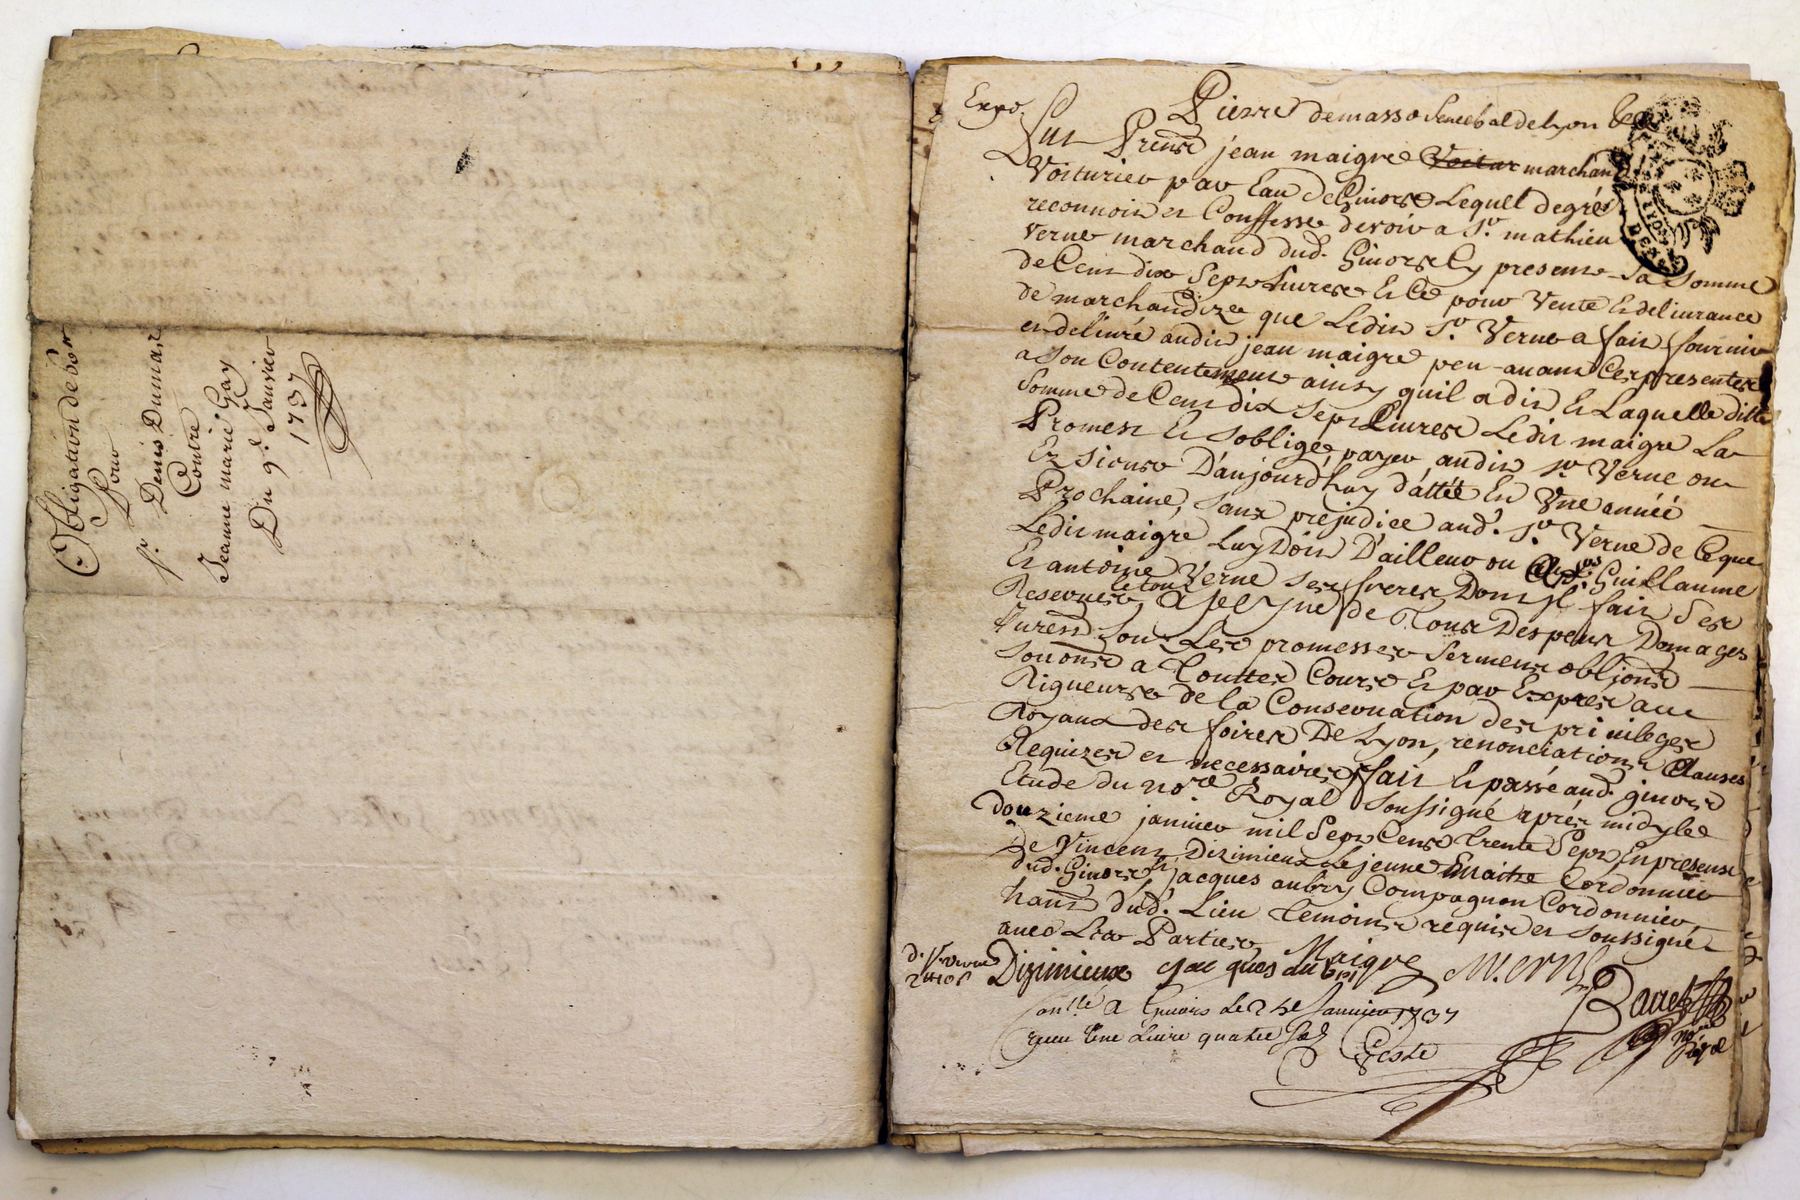 Obligation de 50#
Pour
Sr. Denis Dumas
Contre
Jeanne marie Gay
Du 9e. Janvier
1737
Expé.
Pierre demasso senechal de Lyon
fut Present jean maigre Voitur marchand
Voiturier par Eau de Givors Lequel de gré
reconnoit et Confesse devoir a Sr. mathieu
verne marchand dud. Givors Cy present La somme
de Cent dix Sept Livres Et Ce pour Vente Et delivrance
de marchandize que Ledit Sr. Verne a fait fournir
et delivré audit jean maigre peu avant Ces presentes
a Son Contentement ainsy quil a dit Et Laquelle ditte
Somme de Cent dix Sept Livres Ledit maigre La
Promest Et sobligée payer audit Sr. Verne ou
Ez siens D'aujourdhuy datté En Vne année
Prochaine, sans prejudice aud. Sr. Verne de Ceque
Ledit maigre Luy Doit D'ailleur ou Guillaume
Et antoine Verne ses freres Dont Il fait Ses
Reserves, Le tou a peyne de Tous Despens Domages
sou Les promesses serment obljons
a Touttes Cours Et par Exprés aux
Rigueurs de la Conservation des privileges
Royaux des foires De Lyon, renonciations Clauses
Requizes et necessaires, fait Et passé aud. givors
Etude du nore Royal soussigné aprés midy Le
douzieme janvier mil Sept Cent Trente Sept En presence
de Vincent Dizimieux Le jeune Maitre Cordonnier
dud. Givors Et jacques aubry Compagnon Cordonnier
hant dud. Lieu Temoins requis et soussigné
avec Les Parties
Dizimieux jacques aubry Maigre M. verne
Conllé a Givors Le 24e Janvier 1737
receu Une Livre quatre Sols
Teste
Royal